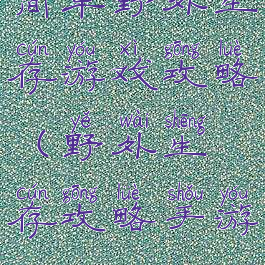 简单野外生
cún yóu xì gōng lüè
存游戏攻略
yě wài shēng
（野外生
cún gōng lüè shǒu yóu
存攻略手游